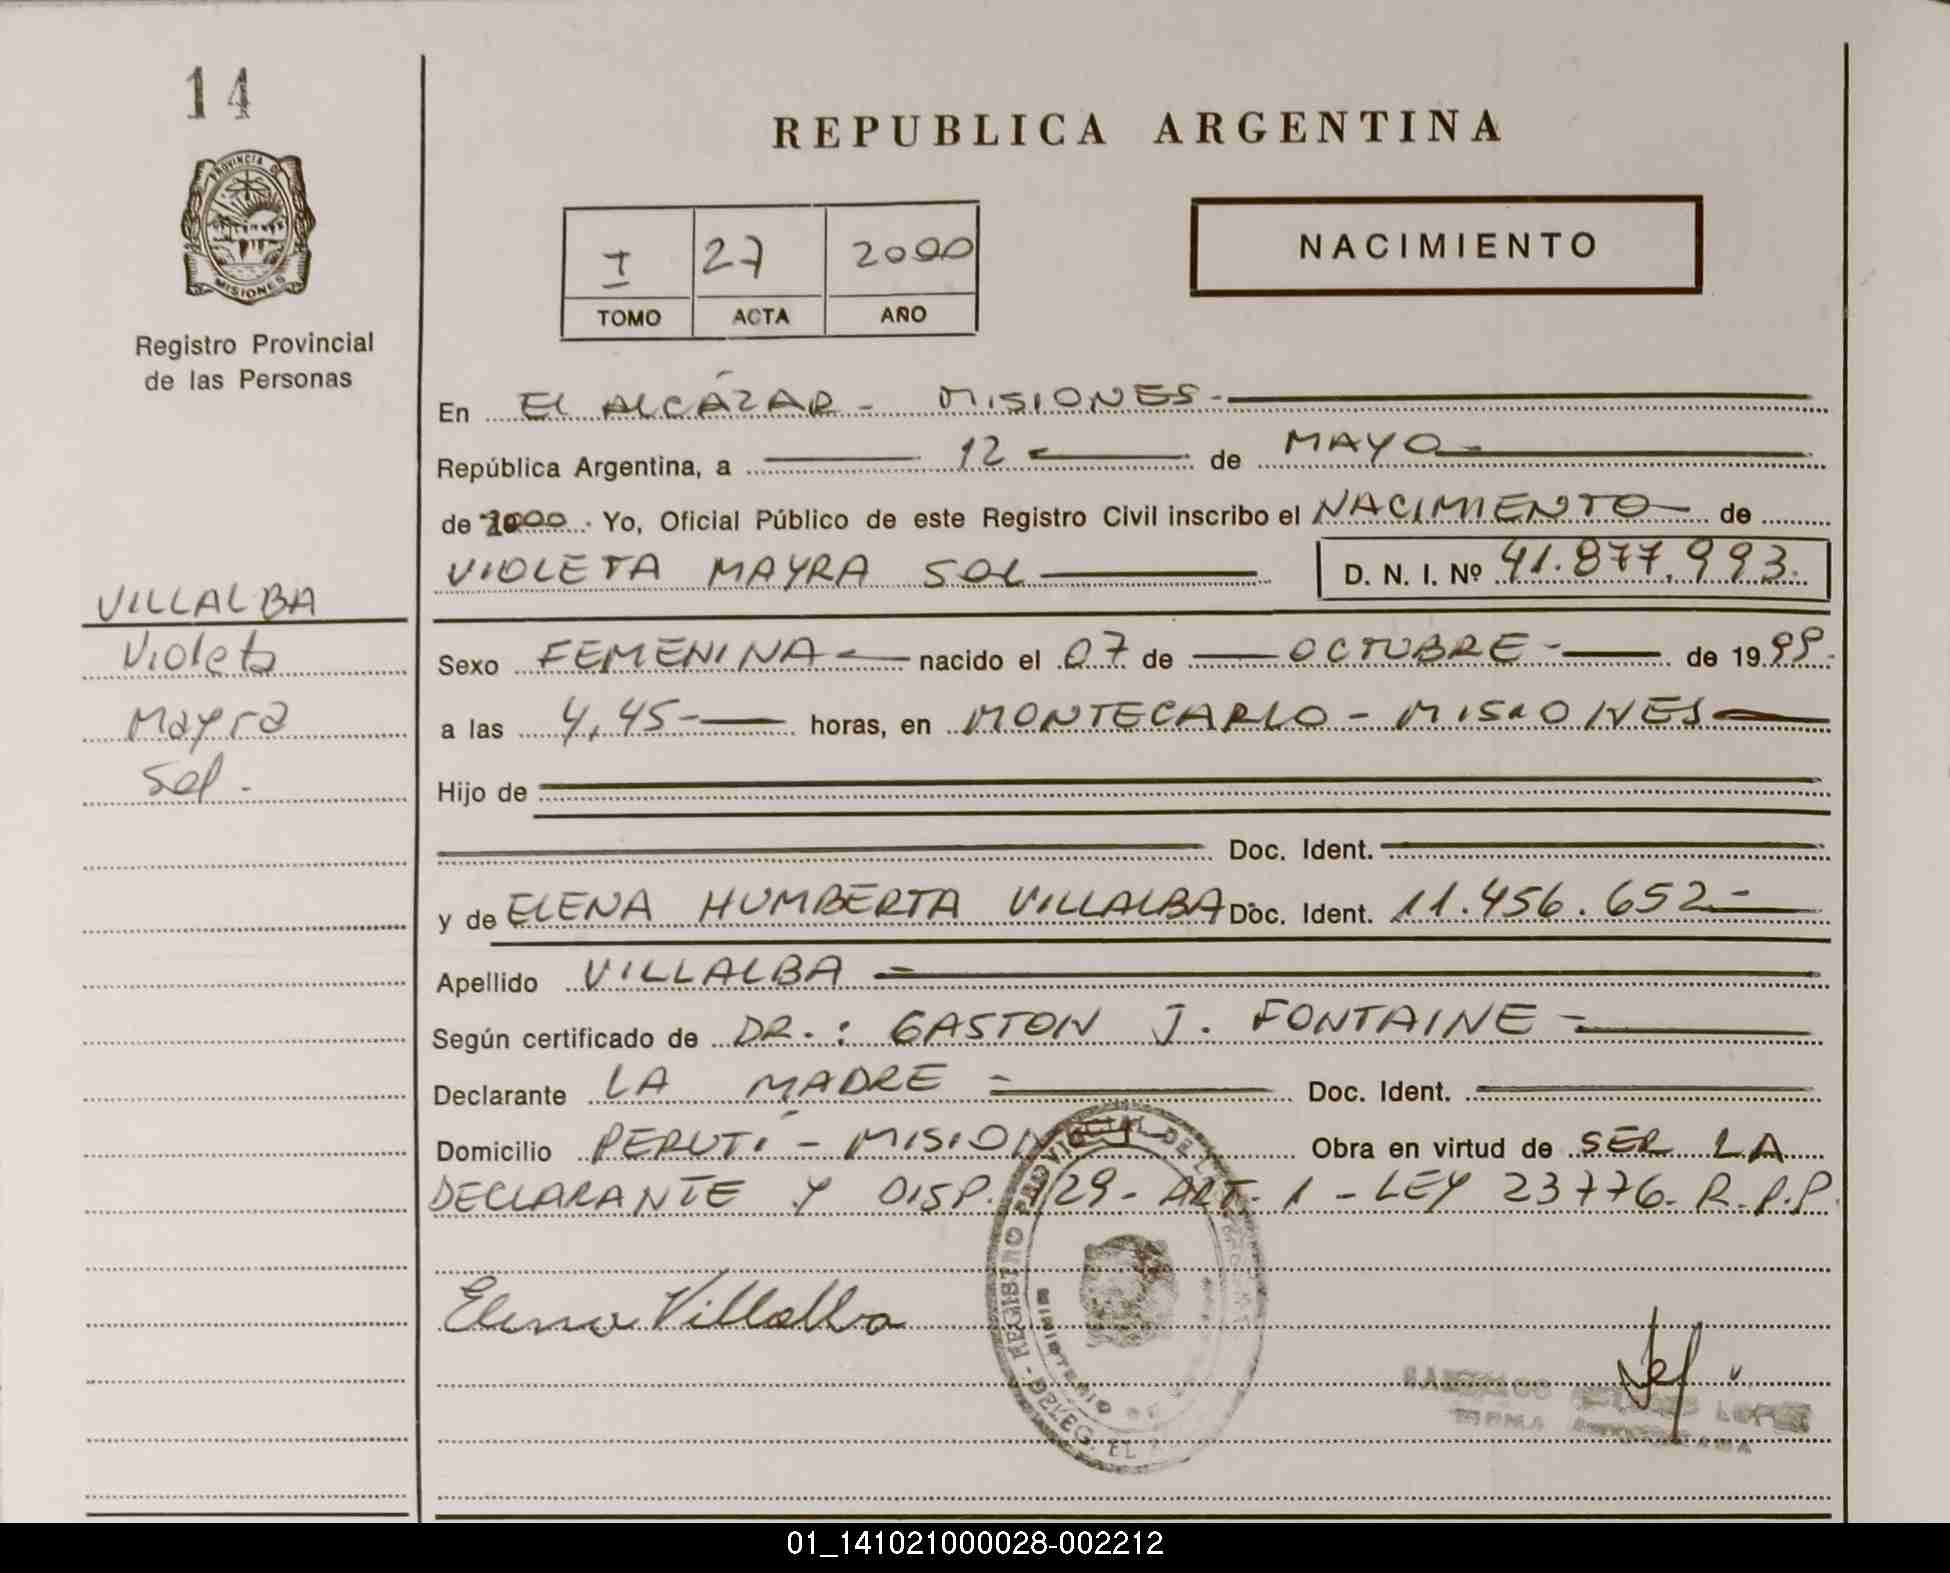 14
PROVINCIA DE
MISIONES
Registro Provincial
de las Personas
REPUBLICA ARGENTINA
I 27 2000
TOMO ACTA AÑO
NACIMIENTO
En EL ALCÁZAR - MISIONES -
República Argentina, a 12 de MAYO
de 2000 . Yo, Oficial Público de este Registro Civil inscribo el NACIMIENTO de
VIOLETA MAYRA SOL D. N. I. Nº 41.877.993.
VILLALBA
Violeta
Mayra
Sol -
Sexo FEMENINA nacido el 07 de OCTUBRE - de 1999.
a las 4,45- horas, en MONTECARLO - MISIONES
Hijo de
Doc. Ident.
y de ELENA HUMBERTA VILLALBA Doc. Ident. 11.456.652-
Apellido VILLALBA =
Según certificado de DR.: GASTON J. FONTAINE =
Declarante LA MADRE = Doc. Ident.
Domicilio PERUTÍ - MISIONES Obra en virtud de SER LA
DECLARANTE Y DISP. 129- ART. 1 - LEY 23776- R.P.P.
Elena Villalba
REGISTRO PROVINCIAL DE
MINISTERIO DE
DELEG. EL
01_141021000028-002212